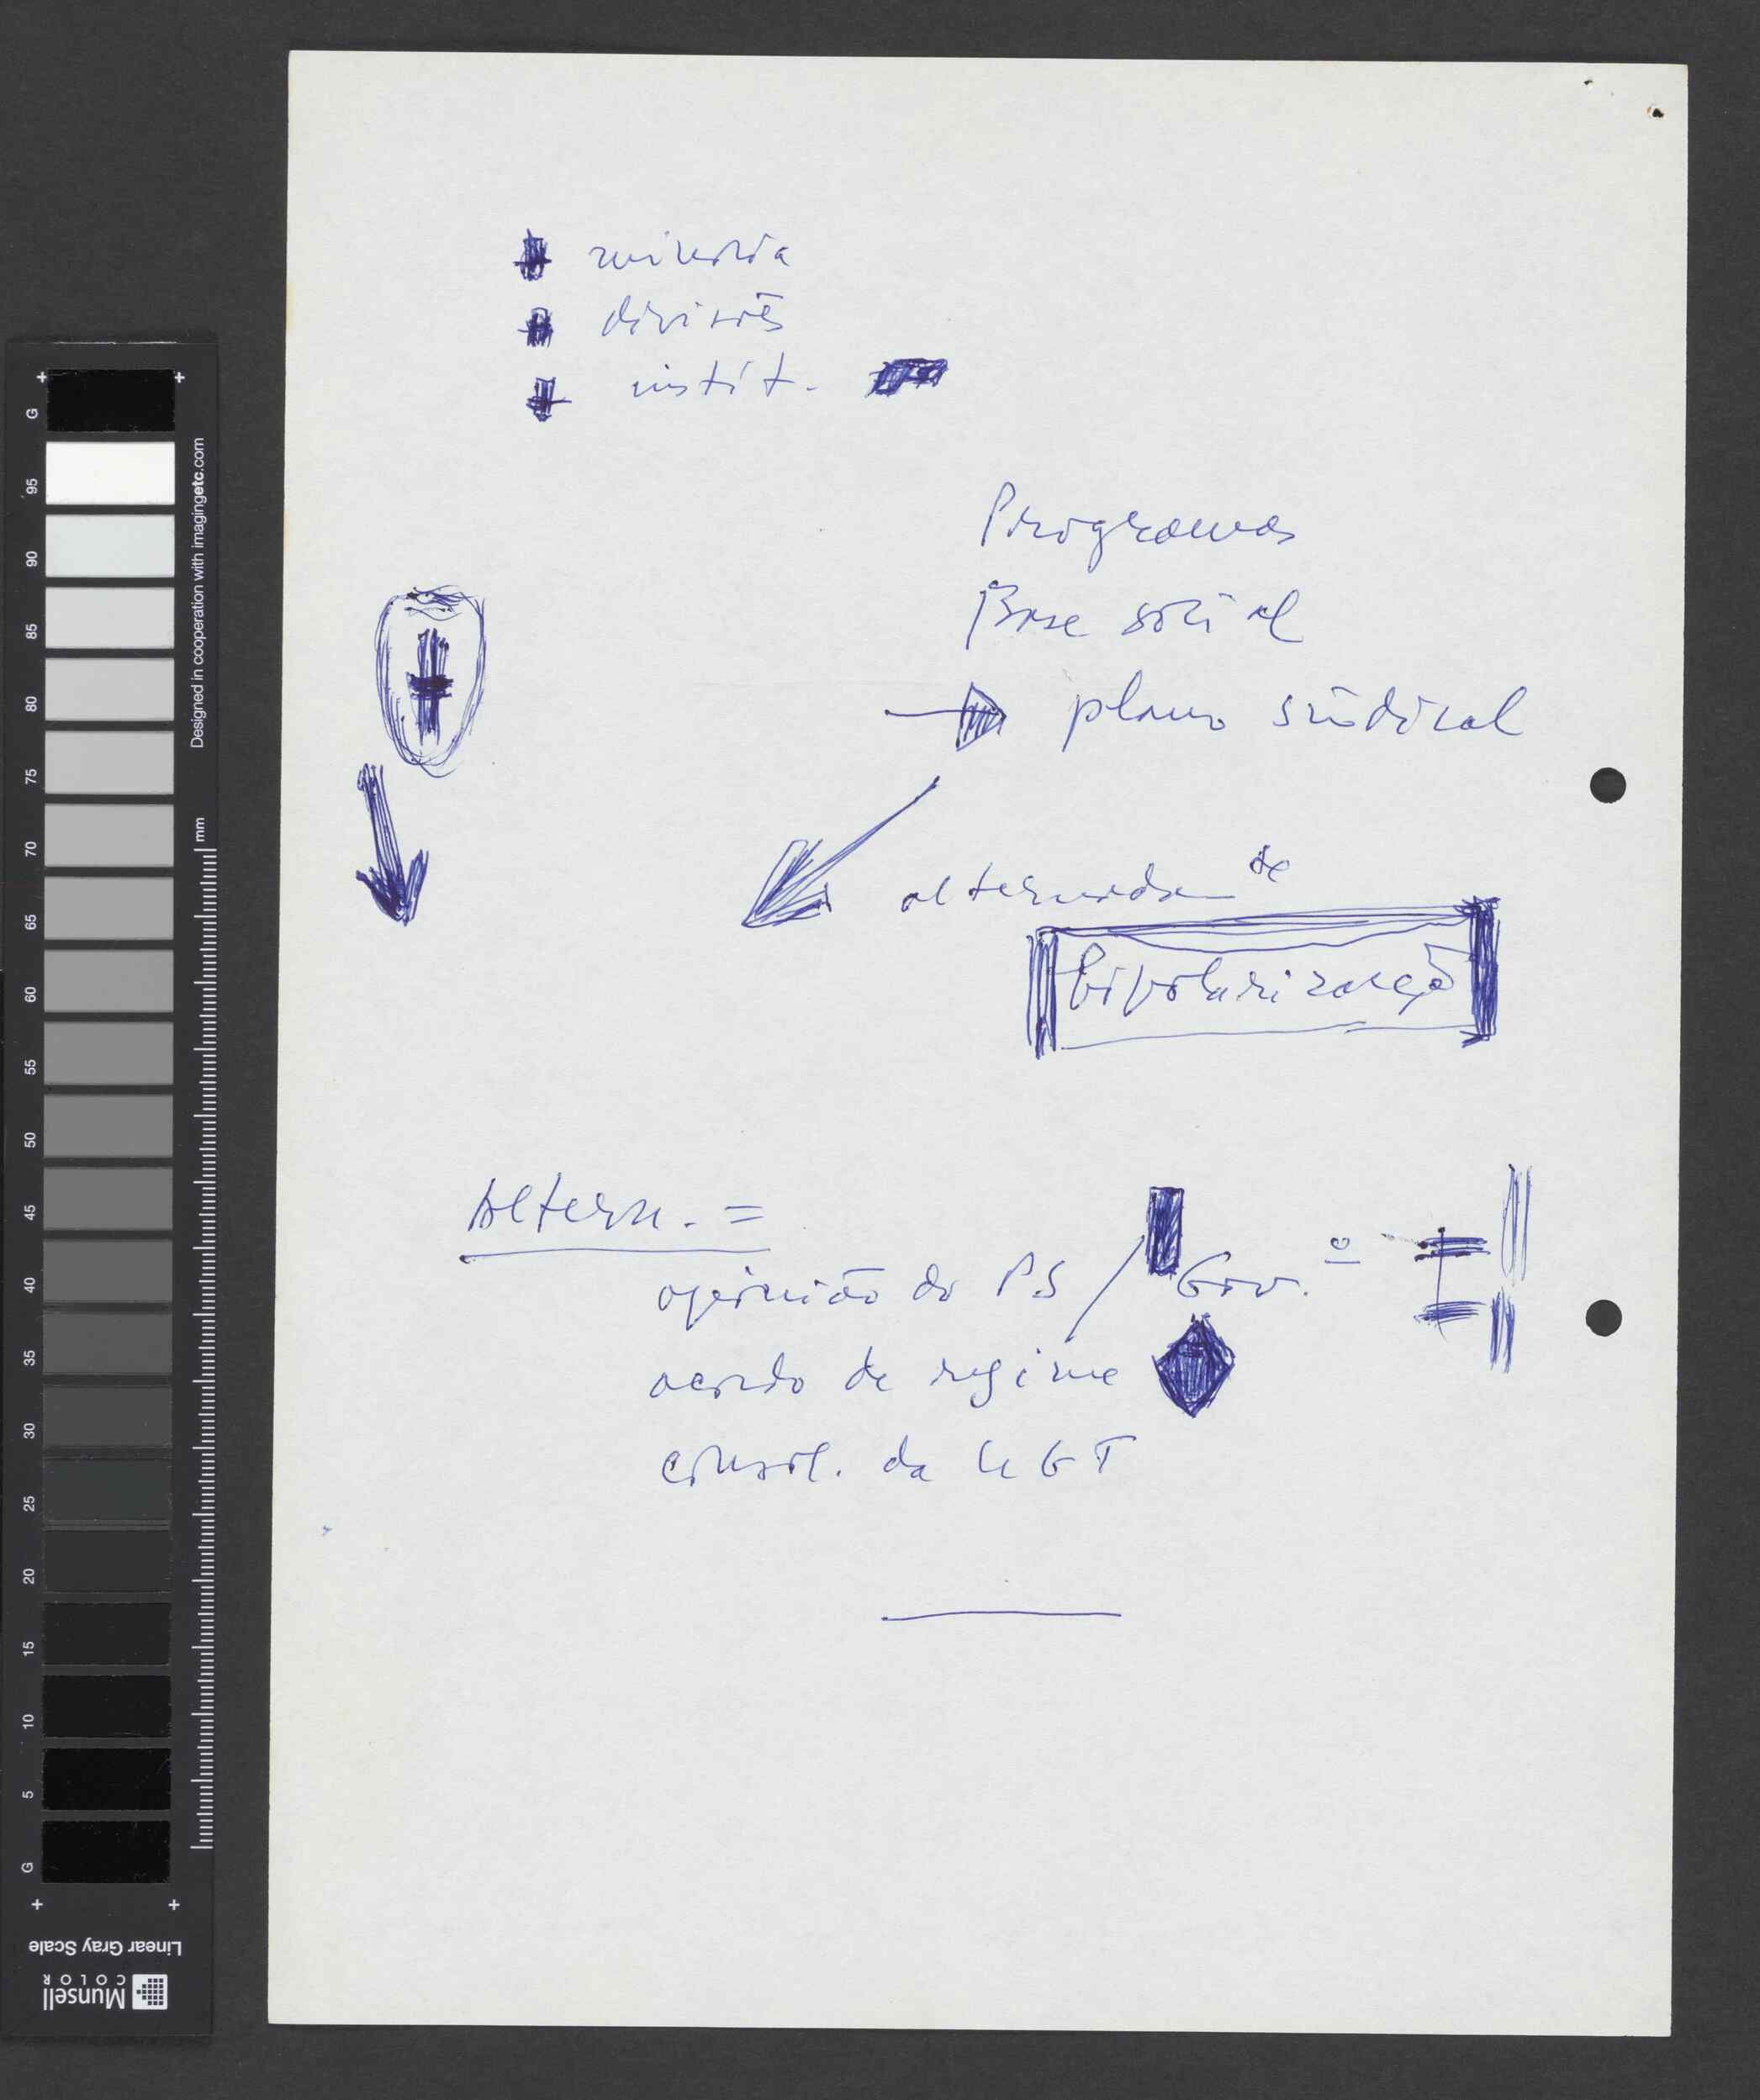 minoria
divisões
instit.
Programas
Base social
plano sindical
de
bipolarização
Altern. =
opinião do PS / Gov.º
acordo de regime
consol. da UGT
G
95
90
85
80
75
70
65
60
55
50
45
40
35
30
25
20
15
10
5
G
Designed in cooperation with imagingetc.com
mm
Linear Gray Scale
Munsell
COLOR